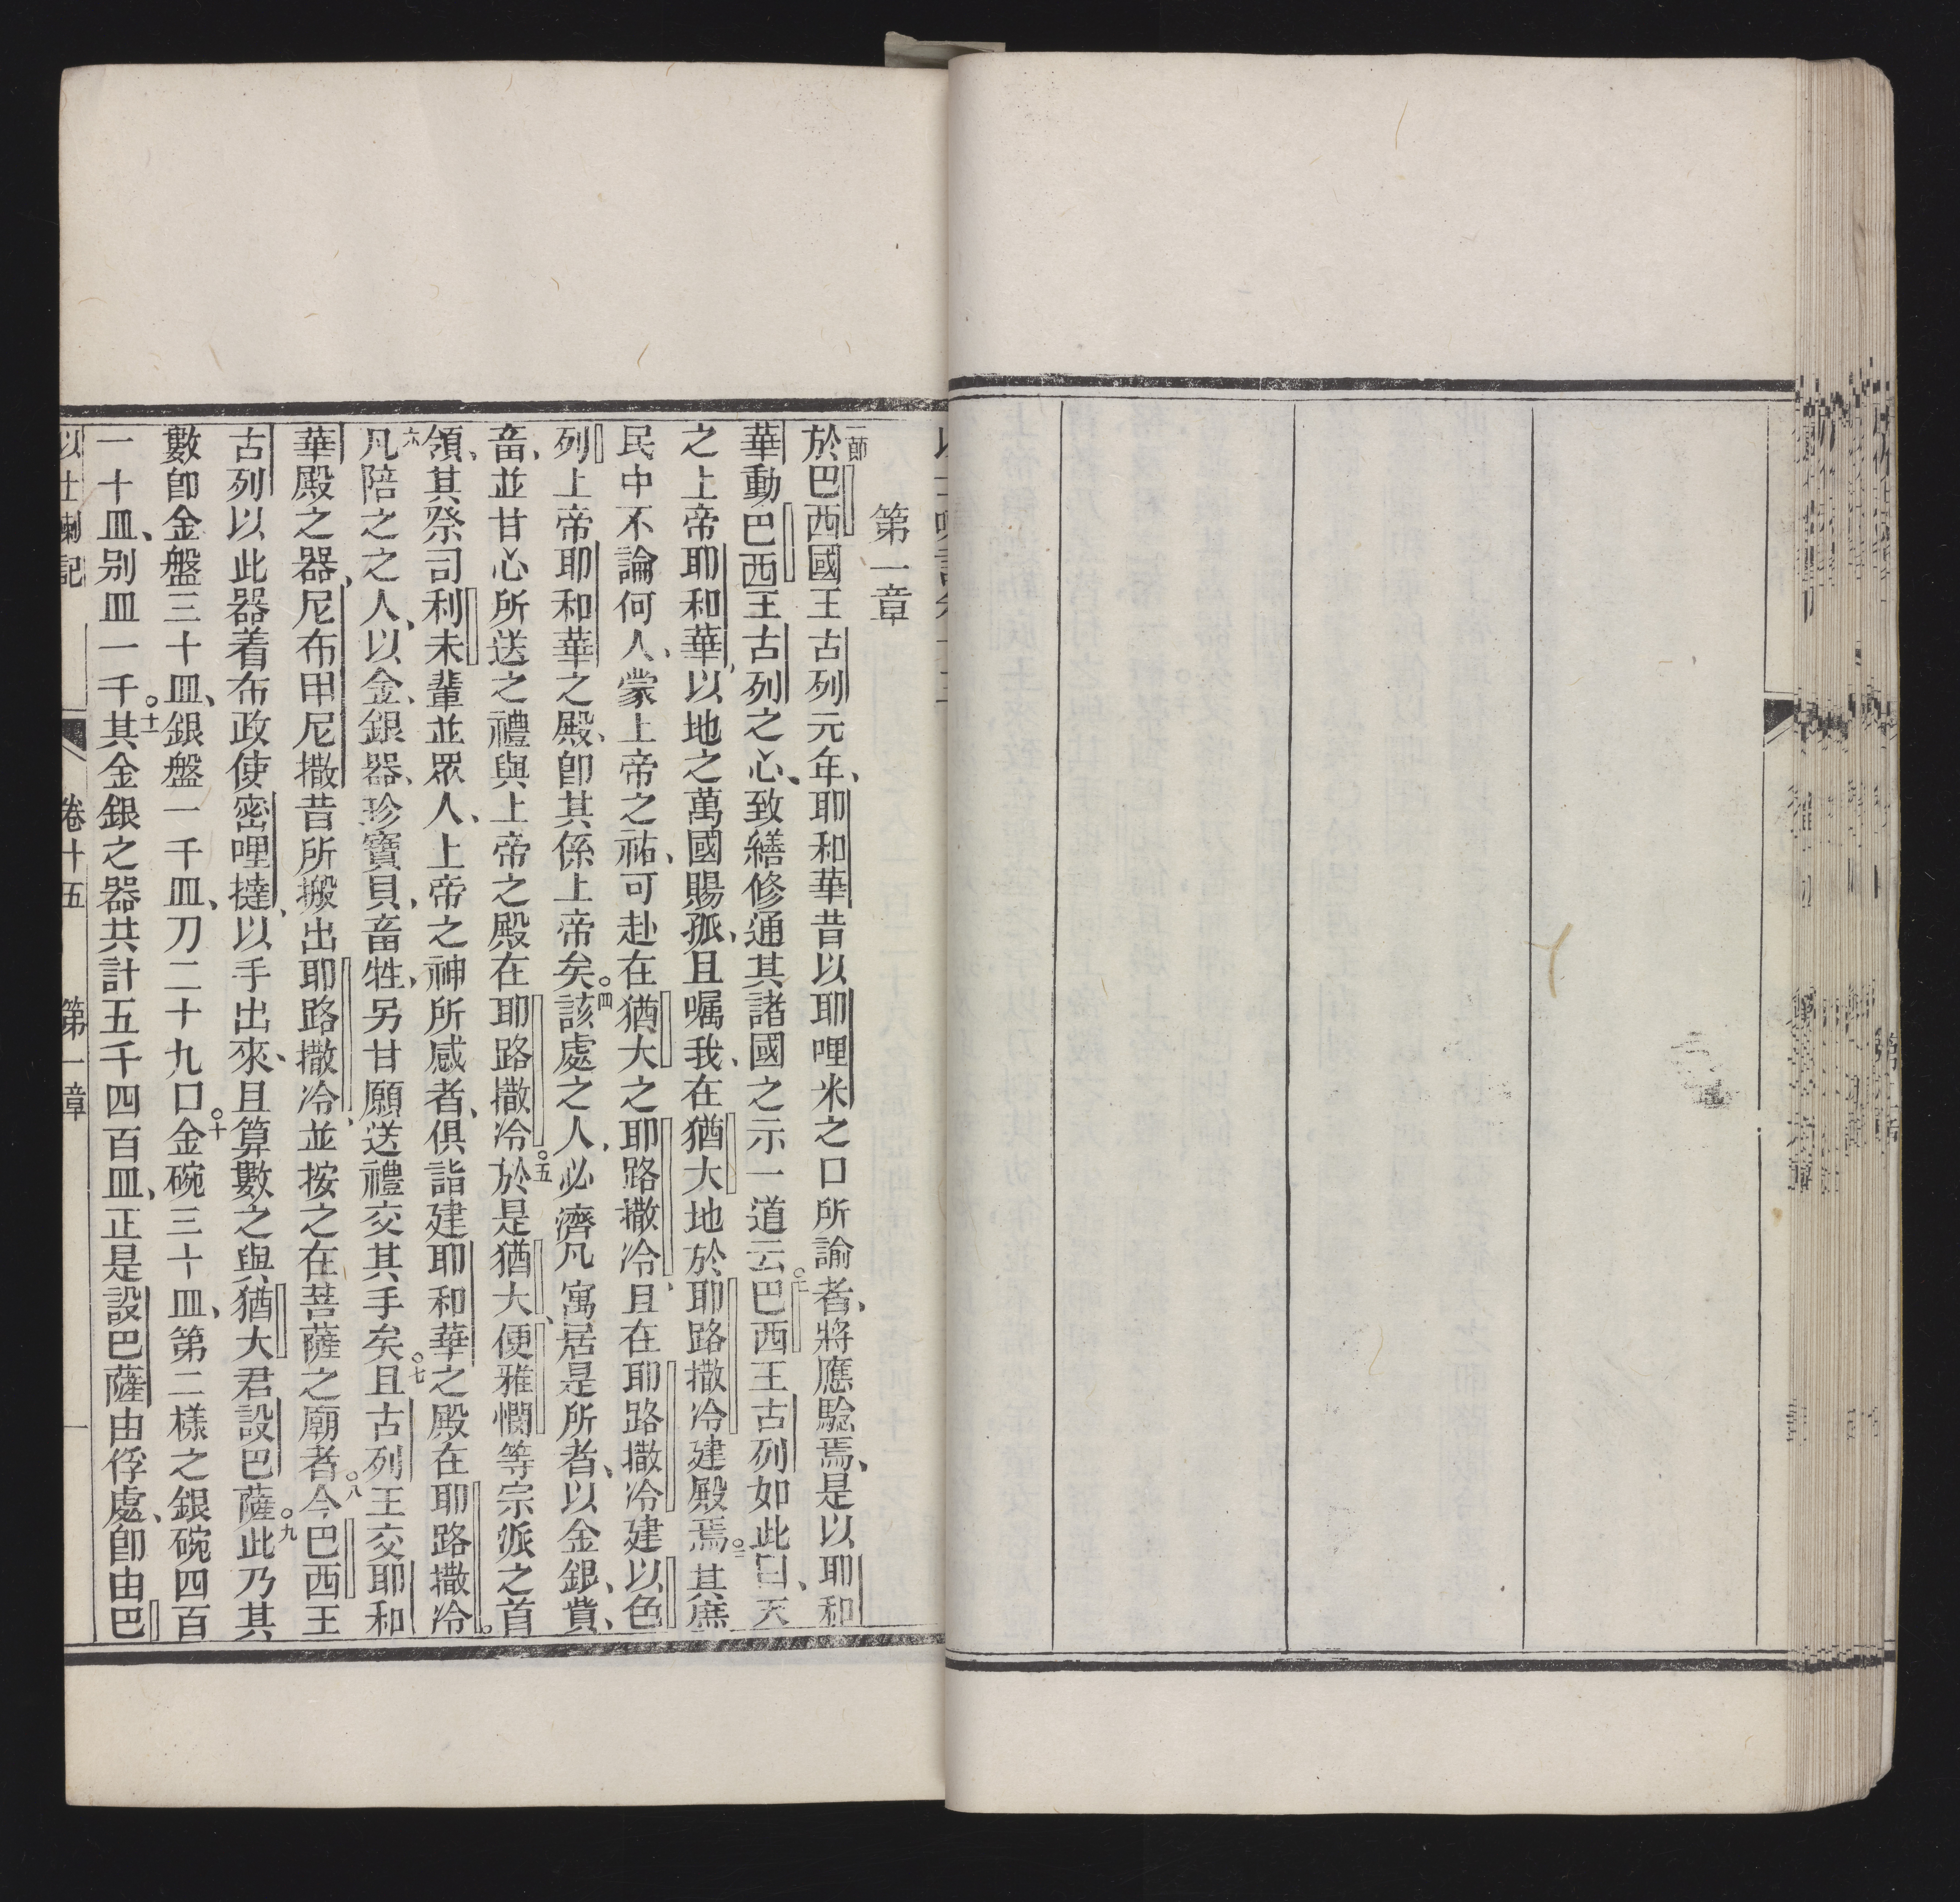 第一章
一節於巴西國王古列元年、耶和華昔以耶哩米之口所諭者、將應驗焉、是以耶和
華動巴西王古列之心、致繕修通其諸國之示一道云○二巴西王古列如此曰、天
之上帝耶和華、以地之萬國賜孤、且囑我、在猶大地於耶路撒冷建殿焉○三其庶
民中不論何人、蒙上帝之祐、可赴在猶大之耶路撒冷、且在耶路撒冷建以色
列上帝耶和華之殿、卽其係上帝矣○四該處之人、必濟凡寓居是所者、以金銀、貲、
畜、並甘心所送之禮與上帝之殿在耶路撒冷○五於是猶大、便雅憫等宗派之首
領、其祭司利未輩並眾人、上帝之神所感者、俱詣建耶和華之殿在耶路撒冷。
六凡陪之之人、以金、銀器、珍寶貝、畜牲、另甘願送禮交其手矣○七且古列王交耶和
華殿之器、尼布甲尼撒昔所搬出耶路撒冷、並按之在菩薩之廟者○八今巴西王
古列以此器着布政使密哩撻、以手出來、且算數之與猶大君設巴薩○九此乃其
數卽金盤三十皿、銀盤一千皿、刀二十九口○十金碗三十皿、第二樣之銀碗四百
一十皿、别皿一千○十一其金銀之器共計五千四百皿、正是設巴薩由俘處、卽由巴
以士喇記 卷十五 第一章 一